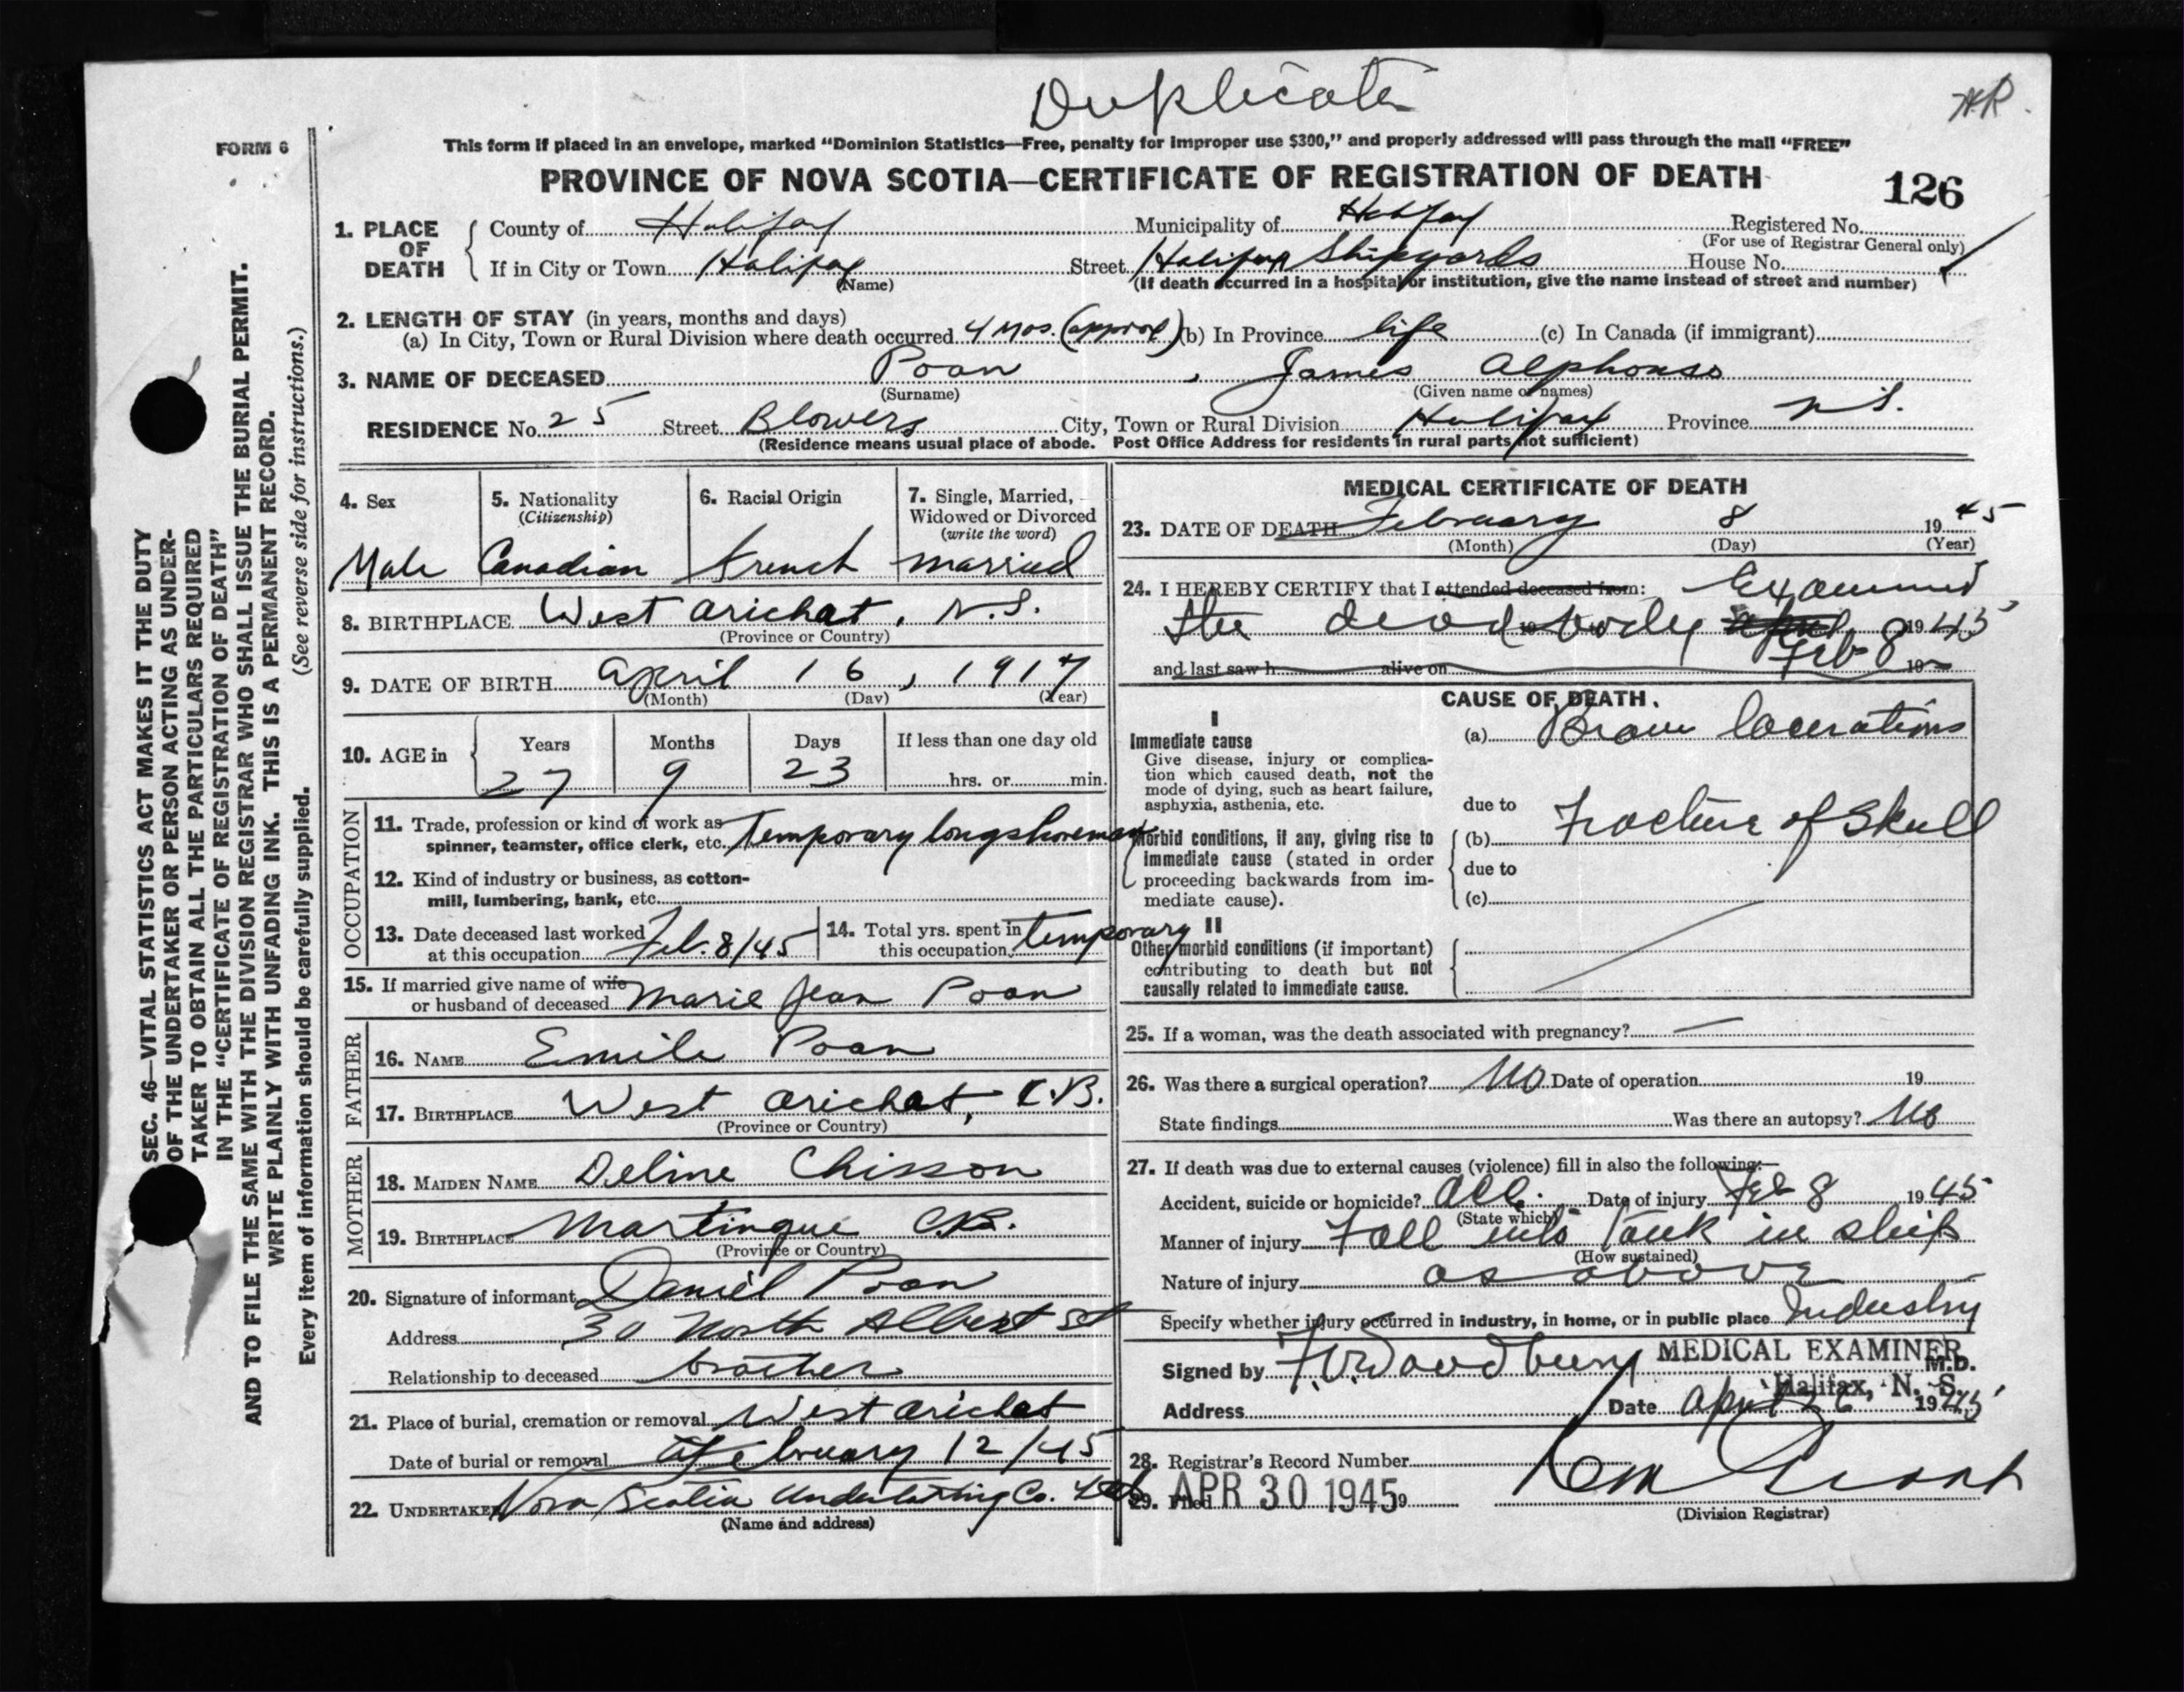 Duplicate
H.R.
FORM 6
This form if placed in an envelope, marked "Dominion Statistics—Free, penalty for improper use $300," and properly addressed will pass through the mail "FREE"
PROVINCE OF NOVA SCOTIA—CERTIFICATE OF REGISTRATION OF DEATH
126
1. PLACE OF DEATH { County of Halifax Municipality of Halifax Registered No.
(For use of Registrar General only)
If in City or Town Halifax Street Halifax Shipyards House No.
(Name) (If death occurred in a hospital or institution, give the name instead of street and number)
2. LENGTH OF STAY (in years, months and days)
(a) In City, Town or Rural Division where death occurred 4 mos. (approx) (b) In Province life (c) In Canada (if immigrant)
3. NAME OF DECEASED Poan , James Alphonso
(Surname) (Given name or names)
RESIDENCE No. 25 Street Blowers City, Town or Rural Division Halifax Province N.S.
(Residence means usual place of abode. Post Office Address for residents in rural parts not sufficient)
4. Sex
Male
5. Nationality
(Citizenship)
Canadian
6. Racial Origin
French
7. Single, Married,
Widowed or Divorced
(write the word)
married
8. BIRTHPLACE West Arichat, N.S.
(Province or Country)
9. DATE OF BIRTH April 16, 1917
(Month) (Day) (Year)
10. AGE in { Years Months Days If less than one day old
27 9 23 hrs. or min.
OCCUPATION
11. Trade, profession or kind of work as
spinner, teamster, office clerk, etc. temporary longshoreman
12. Kind of industry or business, as cotton-
mill, lumbering, bank, etc.
13. Date deceased last worked
at this occupation Feb. 8/45
14. Total yrs. spent in
this occupation temporary
15. If married give name of wife
or husband of deceased Marie Jean Poan
FATHER
16. NAME Emile Poan
17. BIRTHPLACE West Arichat, C.B.
(Province or Country)
MOTHER
18. MAIDEN NAME Deline Chisson
19. BIRTHPLACE Martinque C.B.
(Province or Country)
20. Signature of informant Daniel Poan
Address 30 North Albert St
Relationship to deceased brother
21. Place of burial, cremation or removal West Arichat
Date of burial or removal February 12/45
22. UNDERTAKER Nova Scotia Undertaking Co.
(Name and address)
MEDICAL CERTIFICATE OF DEATH
23. DATE OF DEATH February 8 1945
(Month) (Day) (Year)
24. I HEREBY CERTIFY that I attended deceased from: Examined
the dead body 1945
Feb 8
and last saw h alive on 19
CAUSE OF DEATH.
I
Immediate cause
Give disease, injury or complica-
tion which caused death, not the
mode of dying, such as heart failure,
asphyxia, asthenia, etc.
(a) Brain lacerations
due to
Morbid conditions, if any, giving rise to
immediate cause (stated in order
proceeding backwards from im-
mediate cause).
(b) Fracture of Skull
due to
(c)
II
Other morbid conditions (if important)
contributing to death but not
causally related to immediate cause.
25. If a woman, was the death associated with pregnancy? —
26. Was there a surgical operation? No Date of operation 19
State findings Was there an autopsy? No
27. If death was due to external causes (violence) fill in also the following:—
Accident, suicide or homicide? acc. Date of injury Feb 8 1945
(State which)
Manner of injury Fall into tank in ship
(How sustained)
Nature of injury as above
Specify whether injury occurred in industry, in home, or in public place Industry
Signed by F.V. Woodbury MEDICAL EXAMINER M.D.
Halifax, N. S.
Address Date April 26 1945
28. Registrar's Record Number
29. Filed APR 30 1945 19
(Division Registrar)
SEC. 46—VITAL STATISTICS ACT MAKES IT THE DUTY
OF THE UNDERTAKER OR PERSON ACTING AS UNDER-
TAKER TO OBTAIN ALL THE PARTICULARS REQUIRED
IN THE "CERTIFICATE OF REGISTRATION OF DEATH"
AND TO FILE THE SAME WITH THE DIVISION REGISTRAR WHO SHALL ISSUE THE BURIAL PERMIT.
WRITE PLAINLY WITH UNFADING INK. THIS IS A PERMANENT RECORD.
Every item of information should be carefully supplied. (See reverse side for instructions.)